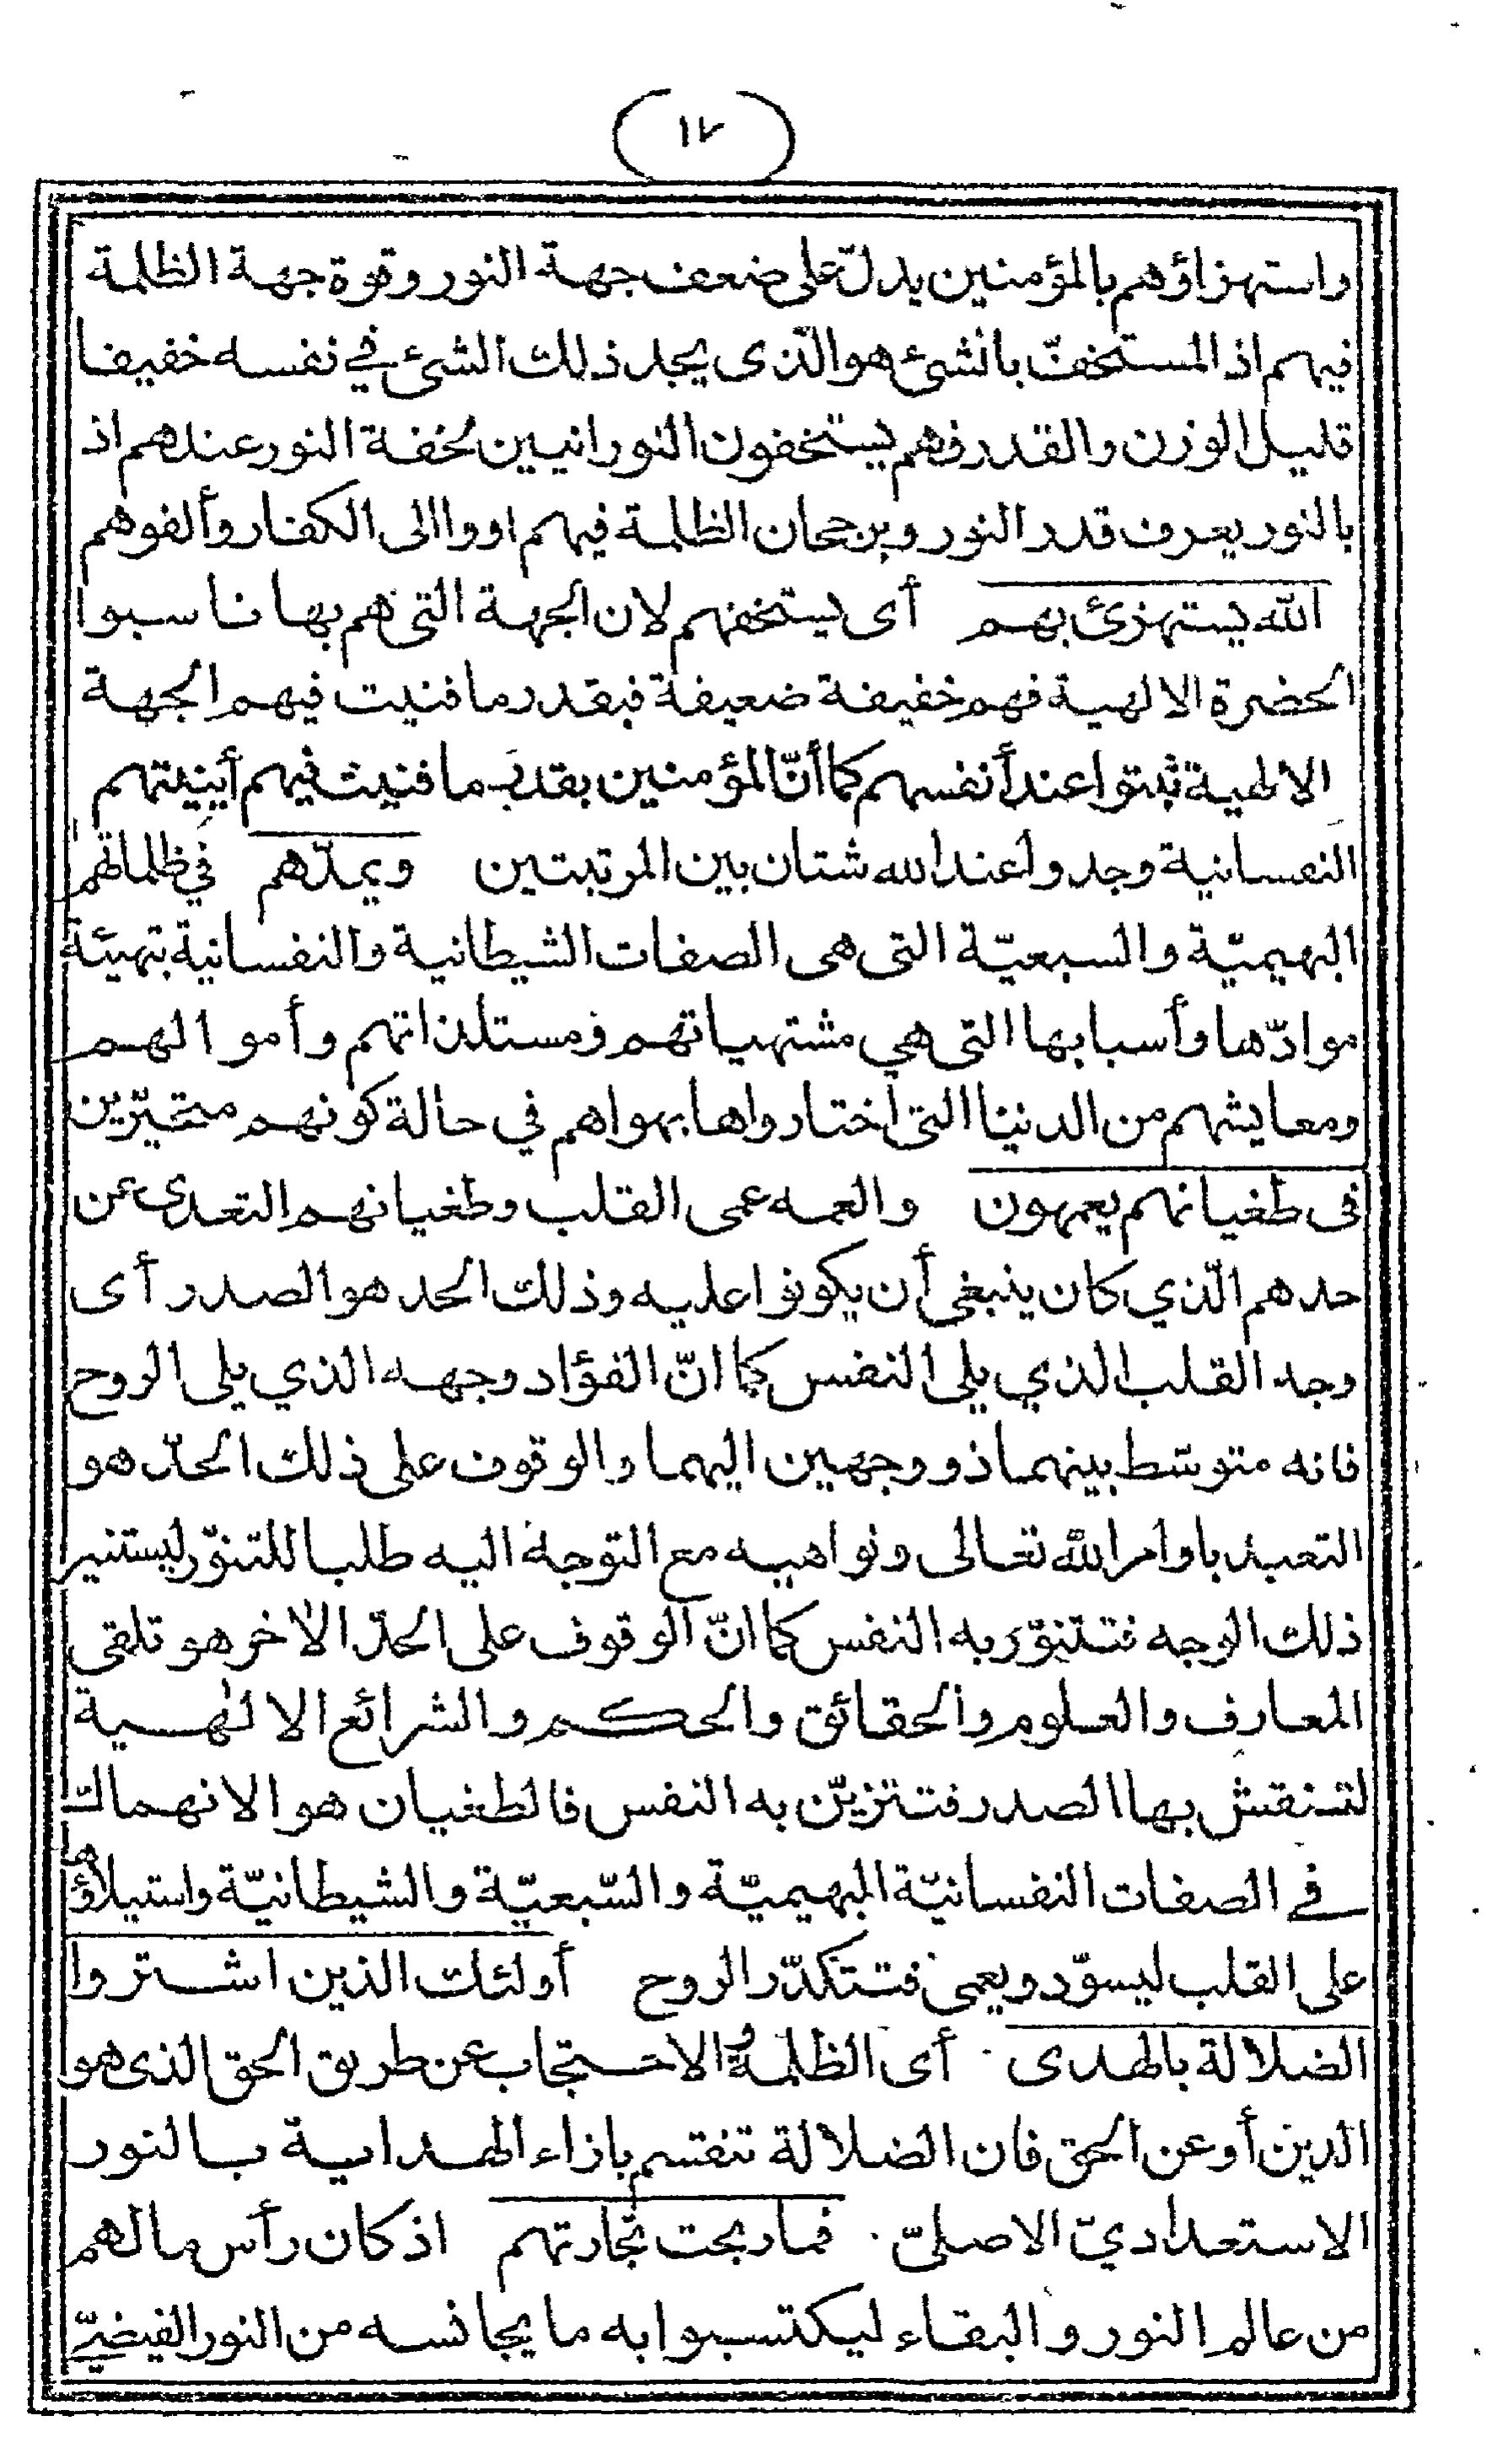 ١٧
واستهزاؤهم بالمؤمنين يدلّ على ضعف جهة النور وقوة جهة الظلمة
فيهم اذ المستخفّ بالشئ هو الّذى يجد ذلك الشئ في نفسه خفيفا
قليل الوزن والقدر فهم يستخفون النورانيين لخفة النور عندهم اذ
بالنور يعرف قدر النور وبرجحان الظلمة فيهم اووا الى الكفار وألفوهم
الله يستهزئ بهم أى يستخفهم لان الجهة التى هم بها ناسبوا
الحضرة الالهية فهم خفيفة ضعيفة فبقدر ما فنيت فيهم الجهة
الالهية ثبتوا عند أنفسهم كما أنّ المؤمنين بقدر ما فنيت فيهم أينيتهم
النفسانية وجدوا عند الله شتان بين المرتبتين ويمدّهم في ظلماتهم
البهيميّة والسبعيّة التى هى الصفات الشيطانية والنفسانية بتهيئة
موادّها وأسبابها التى هي مشتهياتهم ومستلذاتهم وأموالهم
ومعايشهم من الدنيا التى اختاروها بهواهم في حالة كونهم متحيّرين
فى طغيانهم يعمهون والعمه عمى القلب وطغيانهم التعدى عن
حدهم الّذي كان ينبغى أن يكونوا عليه وذلك الحد هو الصدر أى
وجه القلب الذي يلى النفس كما انّ الفؤاد وجهه الذي يلى الروح
فانه متوسّط بينهما ذو وجهين اليهما والوقوف على ذلك الحدّ هو
التعبد باوامر الله تعالى ونواهيه مع التوجه اليه طلبا للتنوّر ليستنير
ذلك الوجه فتتنوّر به النفس كما انّ الوقوف على الحدّ الاخر هو تلقى
المعارف والعلوم والحقائق والحكم والشرائع الالهية
لتنقش بها الصدر فتتزيّن به النفس فالطغيان هو الانهماك
في الصفات النفسانيّة البهيميّة والسّبعيّة والشيطانيّة واستيلاؤها
على القلب ليسوّد ويعمى فتتكدّر الروح أولئك الذين اشتروا
الضلالة بالهدى أى الظلمة والاحتجاب عن طريق الحق الذى هو
الدين أو عن الحق فان الضلالة تنقسم بازاء الهداية بالنور
الاستعداديّ الاصلىّ فما ربحت تجارتهم اذ كان رأس مالهم
من عالم النور والبقاء ليكتسبوا به ما يجانسه من النور الفيضيّ